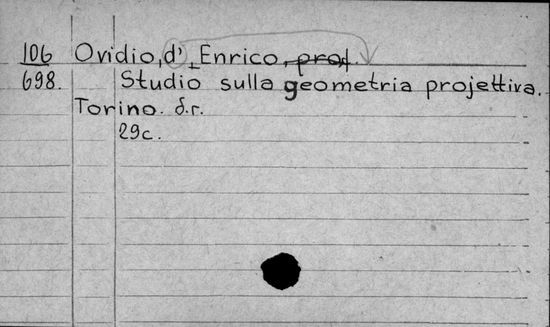 106 Ovidio, d' Enrico, prof.
698. Studio sulla geometria projettiva.
Torino. б.г.
29c.